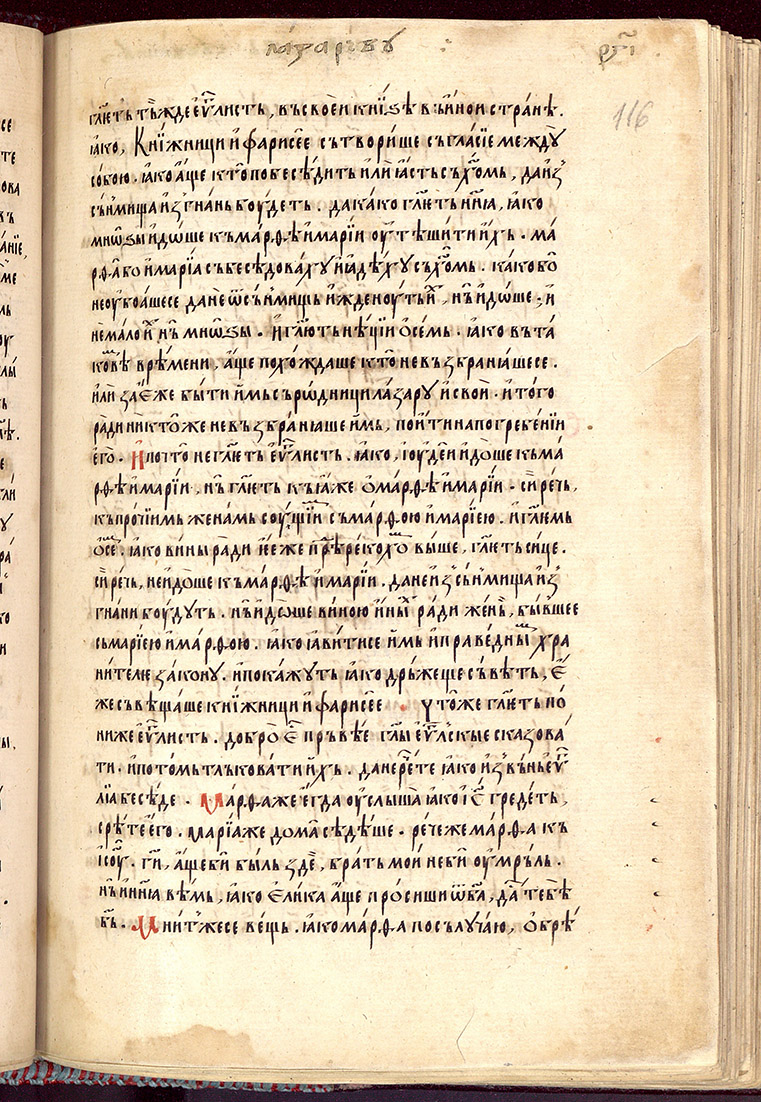 лазарєву
рѕ҃і
116
гл҃ѥть тъжде єѵ҃листь, въ своеи книѕѣ въ иной странѣ.
ꙗко, Книжници и фарисеє сътворише съгласїе междꙋ
собою. ꙗко аще кто побесѣдить или ꙗсть съ хм҃ь, да из
сънмища изгнань боудеть. да како гл҃ѥть нн҃ꙗ, ꙗко
мнѡѕы идѡше къ марѳѣ и марїи оутѣшити ихь. ма
рѳа бо и марїа събесѣдовахꙋ и ꙗдѣхꙋ съ хм҃ь. како бо
не оубоашесе да не ѿ сънмищь ижденоуть их, нь идѡше. и
не мало их нь мнѡѕы. и гл҃ють нѣцїи ѡ семь. ꙗко въ та
ковѣ врѣмени, аще похождаше кто не възбранꙗшесе.
или за еже быти имь сърѡдници лазарꙋ и свои. и того
ради никто же не възбранꙗше имь, поити на погребенїи
его. И почто не гл҃ѥть еѵ҃листь. ꙗко, іоудеи идоше къ ма
рѳѣ и марїи, нь гл҃ѥть къ ꙗже о марѳѣ и марїи. сирѣчь,
къ прочїимь женамь соущїим съ марѳою и марїею. и гл҃ѥмь
ѡ се. ꙗко вины ради ее же и прѣрекохѡм выше, гл҃ѥть сице.
сирѣчь, не идоше къ марѳѣ и марїи. да не из сънмища из
гнани боудꙋть. нь идѡше виною иных ради жень, бывшее
сь марїею и марѳою. ꙗко ꙗвитисе имь и праведным хра
нителю законꙋ. и покажꙋть ꙗко дрьжеще съвѣть, е
же съвѣщаше книжници и фарисеє. Что же гл҃ѥть по
ниже еѵ҃листь. добро ес прьвѣе гл҃ы еѵ҃лскые сказова
ти. и потомь тлъковати ихь. да не рѣте ꙗко из вьнь еѵ
лїа бесѣде. Марѳа же егда оуслыша ꙗко іс҃ гредеть,
срѣте его. Марїа же дома сѣдѣше. рече же марѳа къ
іс҃оу. ги҃, аще би быль здѣ, брать мои не би оумрьль.
нь и нн҃ꙗ вѣмь, ꙗко елика аще просиши ѿ ба҃, дасть тебѣ
бь҃. Мнит же се вещь. ꙗко марѳа по сълꙋчаю, обрѣ